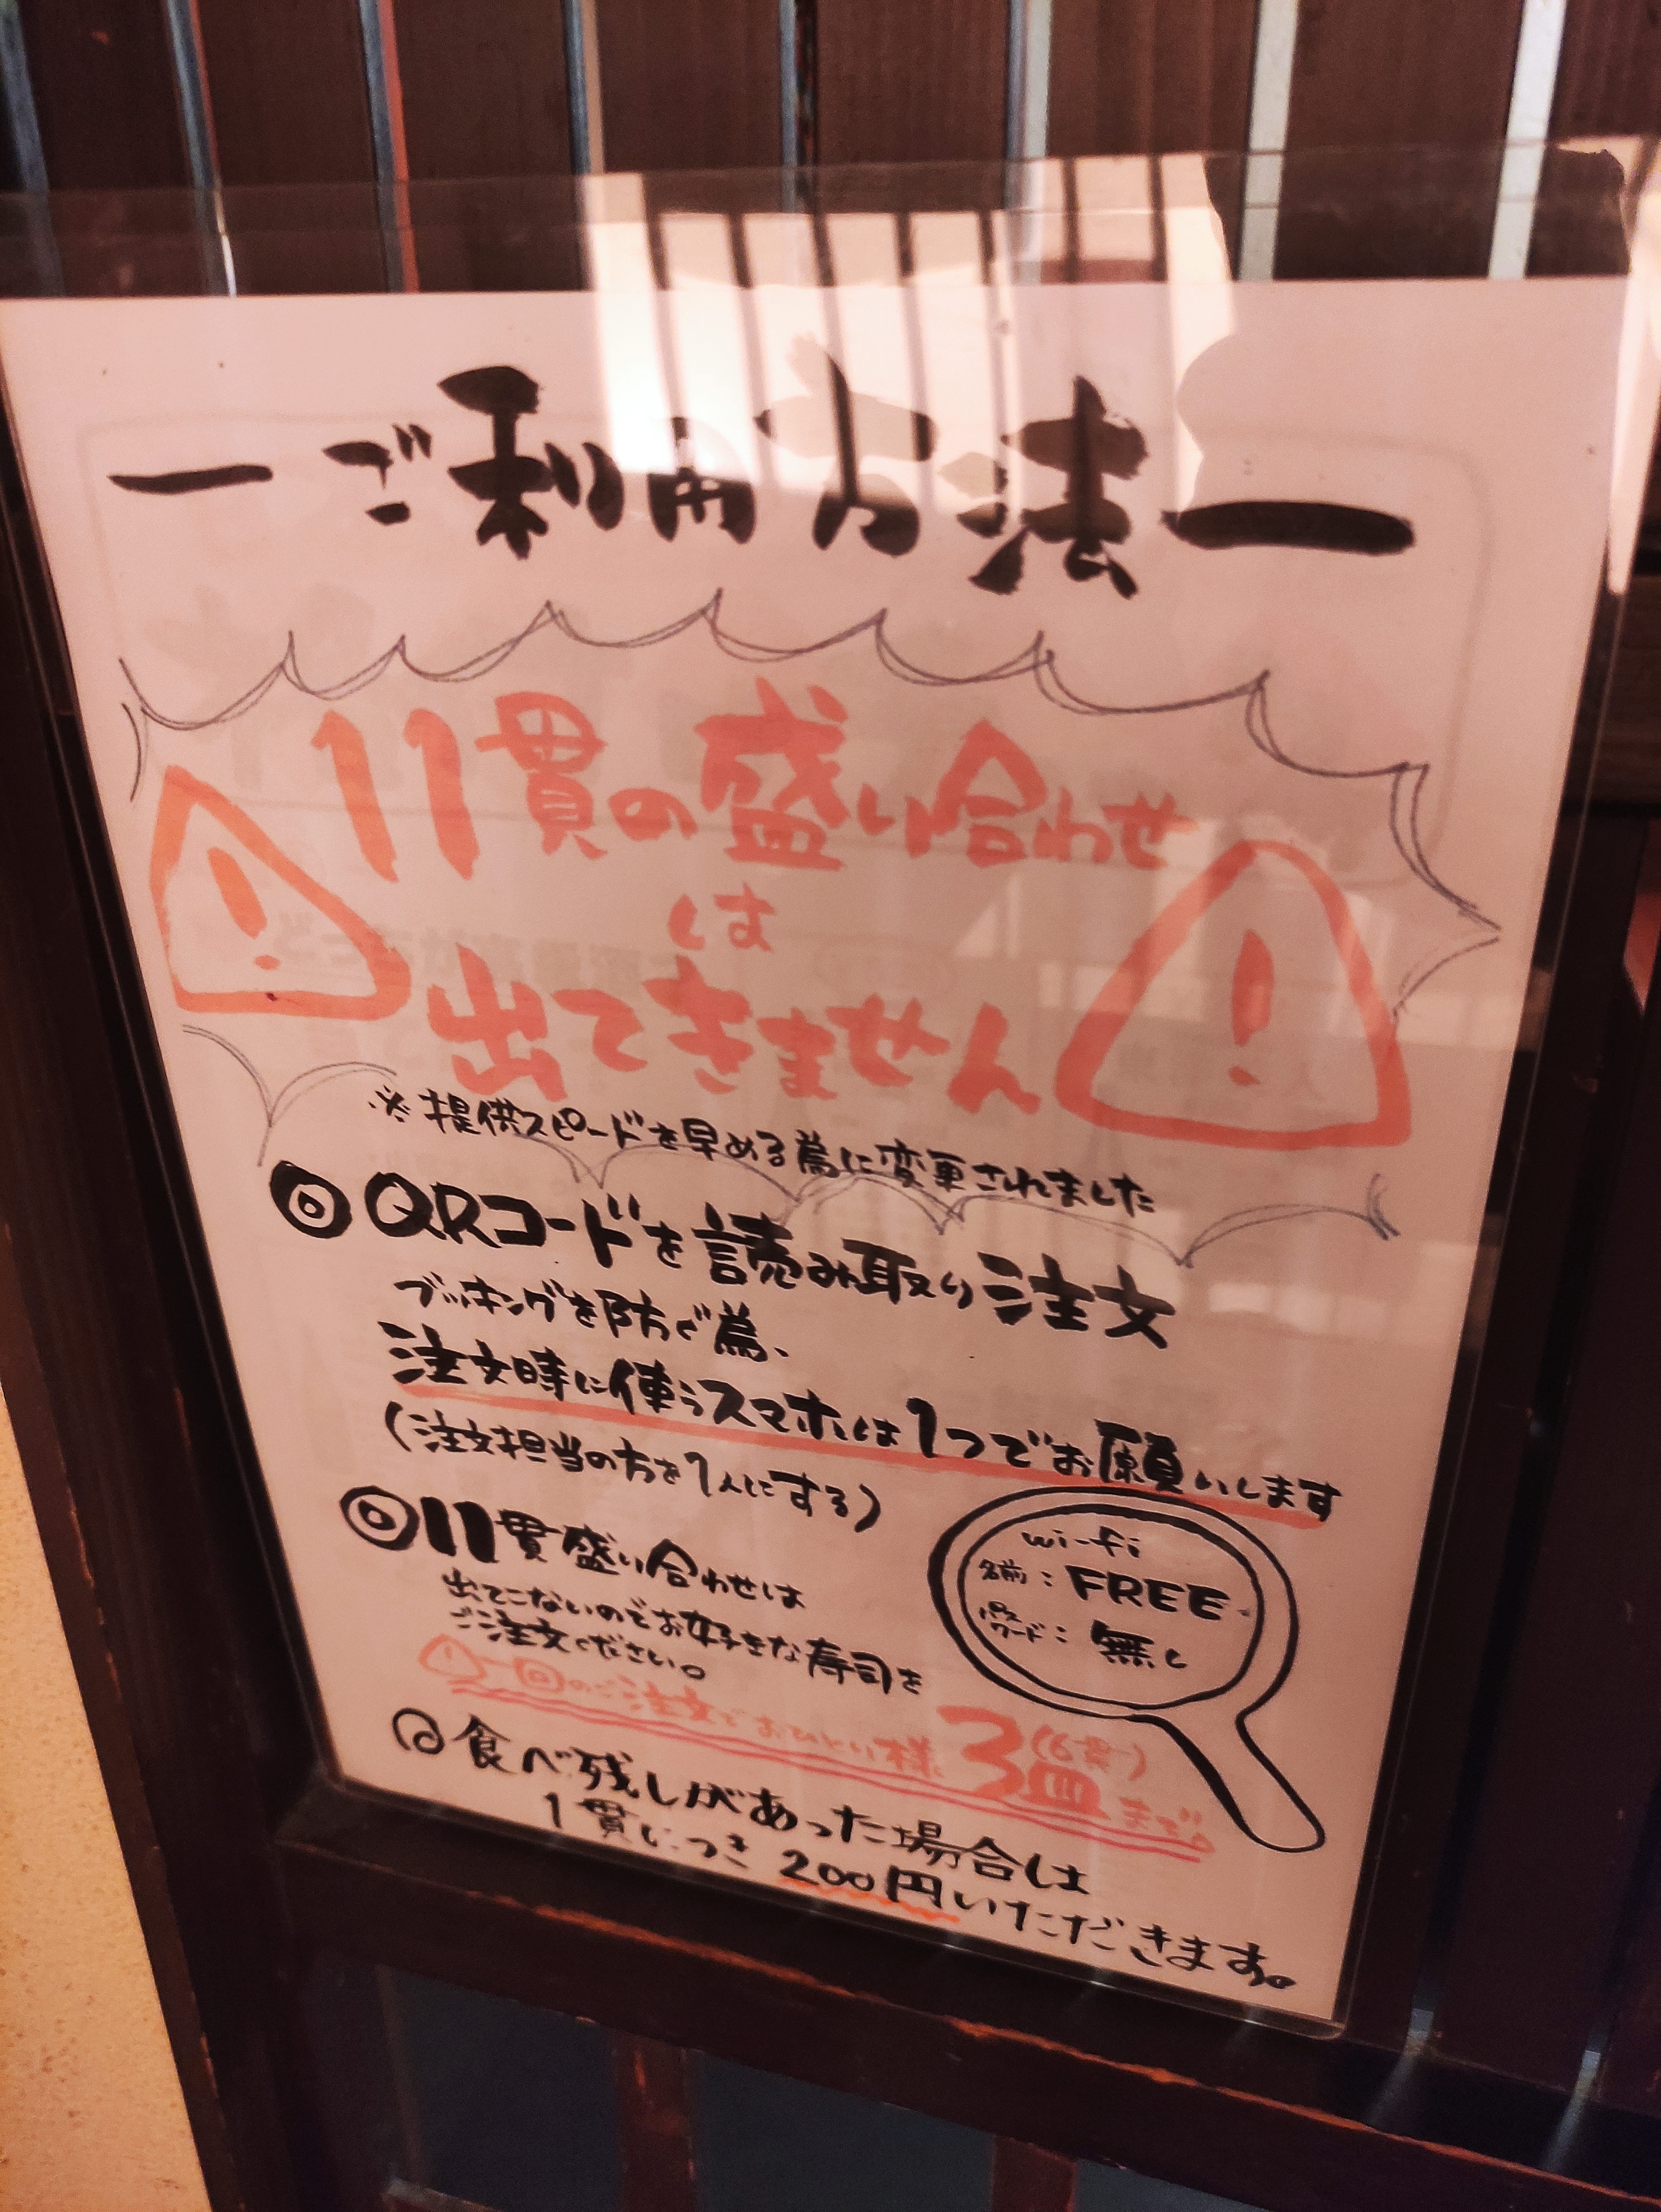 ーご利用方法ー
11貫の盛り合わせ
は
出てきません
※提供スピードを早める為に変更されました
◎QRコードを読み取り注文
ブッキングを防ぐ為、
注文時に使うスマホは1つでお願いします
(注文担当の方を1人にする)
◎11貫盛り合わせは
出てこないのでお好きな寿司を
ご注文ください。
wi-fi
名前:FREE
パスワード:無し
⚠一回のご注文でおひとり様3皿(6貫)まで。
◎食べ残しがあった場合は
1貫につき200円いただきます。